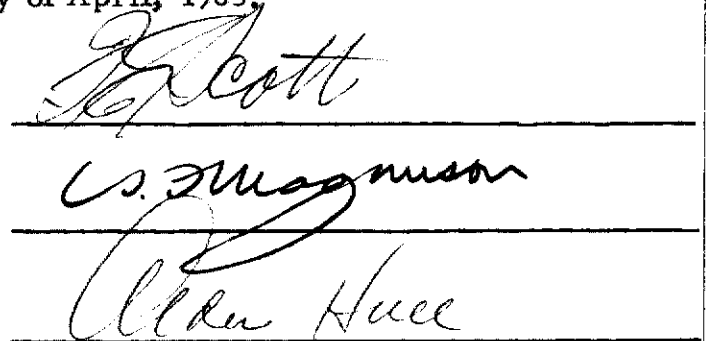 of April, 1983.
Scott
Magnuson
Alden Hull